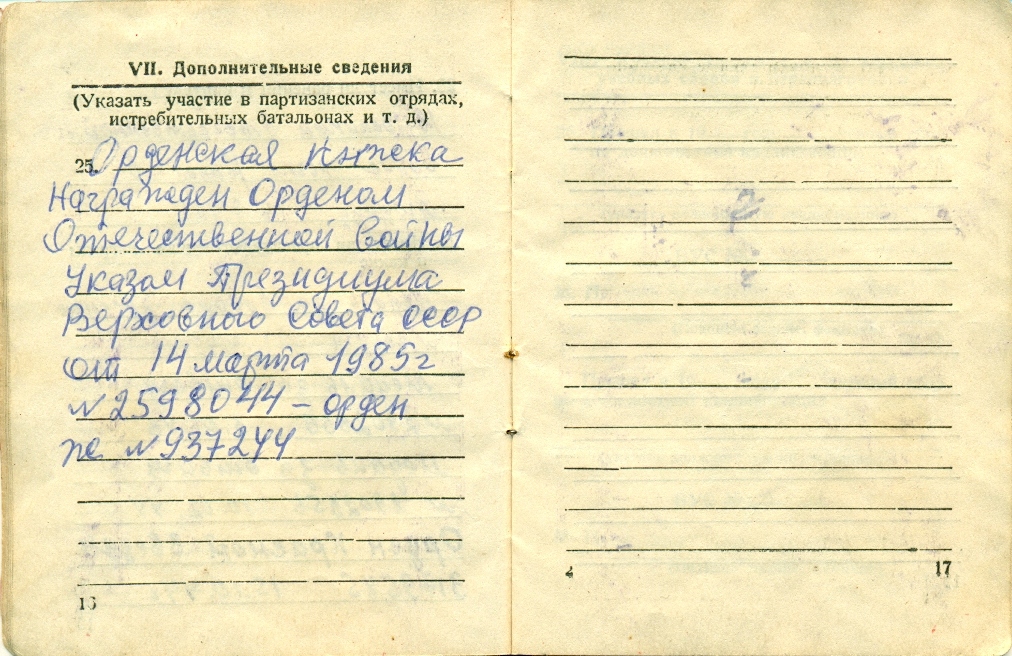 VII. Дополнительные сведения
(Указать участие в партизанских отрядах,
истребительных батальонах и т. д.)
25. Орденская книжка
Награжден Орденом
Отечественной войны
Указом Президиума
Верховного Совета СССР
от 14 марта 1985г
№2598044 – орден
же №937244
16
2
17